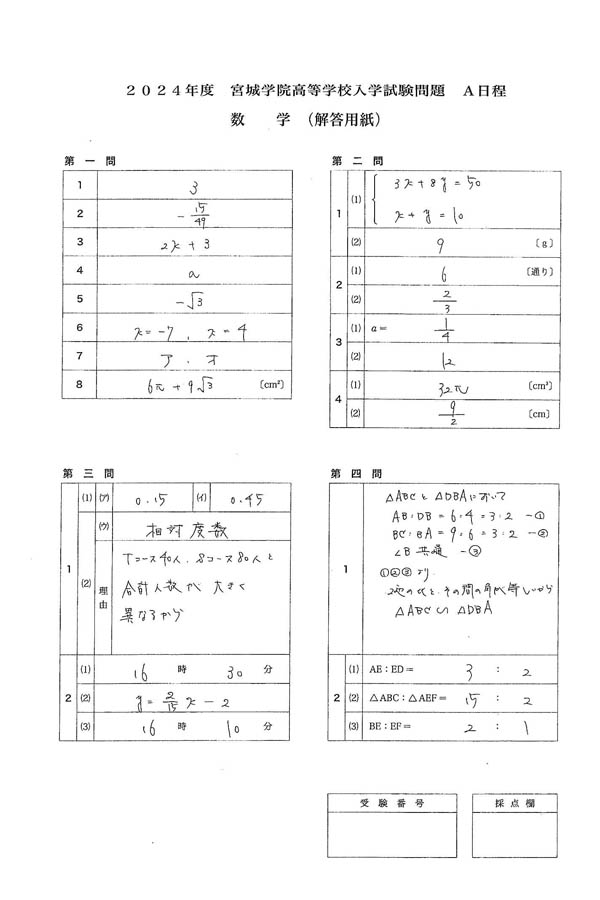 2024年度 宮城学院高等学校入学試験問題 A日程
数 学 (解答用紙)
第 一 問
1 3
2 -15/49
3 2x+3
4 a
5 -√3
6 x=-7, x=4
7 ア, オ
8 6π+9√3 〔cm²〕
第 二 問
1 (1) { 3x+8y=50
x+y=10
(2) 9 〔g〕
2 (1) 6 〔通り〕
(2) 2/3
3 (1) a= 1/4
(2) 12
4 (1) 32π 〔cm³〕
(2) 9/2 〔cm〕
第 三 問
1 (1) (ア) 0.15 (イ) 0.45
(2) (ウ) 相対度数
理由 Tコース40人、Sコース80人と
合計人数が大きく
異なるから
2 (1) 16 時 30 分
(2) y=2/15x-2
(3) 16 時 10 分
第 四 問
1 △ABCと△DBAにおいて
AB:DB=6:4=3:2 -①
BC:BA=9:6=3:2 -②
∠B 共通 -③
①②③より、
2辺の比と、その間の角が等しいから
△ABC∽△DBA
2 (1) AE:ED= 3 : 2
(2) △ABC:△AEF= 15 : 2
(3) BE:EF= 2 : 1
受験番号 採点欄